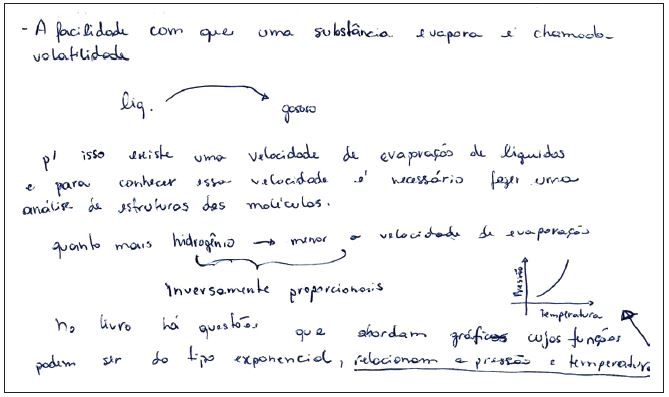 - A facilidade com que uma substância evapora é chamada
volatilidade
liq.
gasoso
p/ isso existe uma velocidade de evaporação de liquidos
e para conhecer essa velocidade é necessário fazer uma
análise de estruturas das moléculas.
quanto mais hidrogênio → menor a velocidade de evaporação
Inversamente proporcionais
Pressão
Temperatura
No livro há questões que abordam gráficos cujos funções
podem ser do tipo exponencial, relacionam a pressão e temperatura